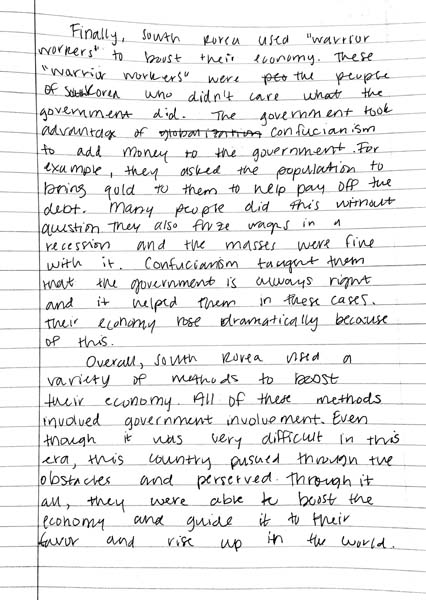 Finally, South Korea used "warrior
workers" to boost their economy. These
"warrior workers" were the people
of South Korea who didn't care what the
government did. The government took
advantage of globalization Confucianism
to add money to the government. For
example, they asked the population to
bring gold to them to help pay off the
debt. Many people did this without
question. They also froze wages in a
recession and the masses were fine
with it. Confucianism taught them
that the government is always right
and it helped them in these cases.
Their economy rose dramatically because
of this.
Overall, South Korea used a
variety of methods to boost
their economy. All of these methods
involved government involvement. Even
though it was very difficult in this
era, this country pushed through the
obstacles and perserved. Through it
all, they were able to boost the
economy and guide it to their
favor and rise up in the world.